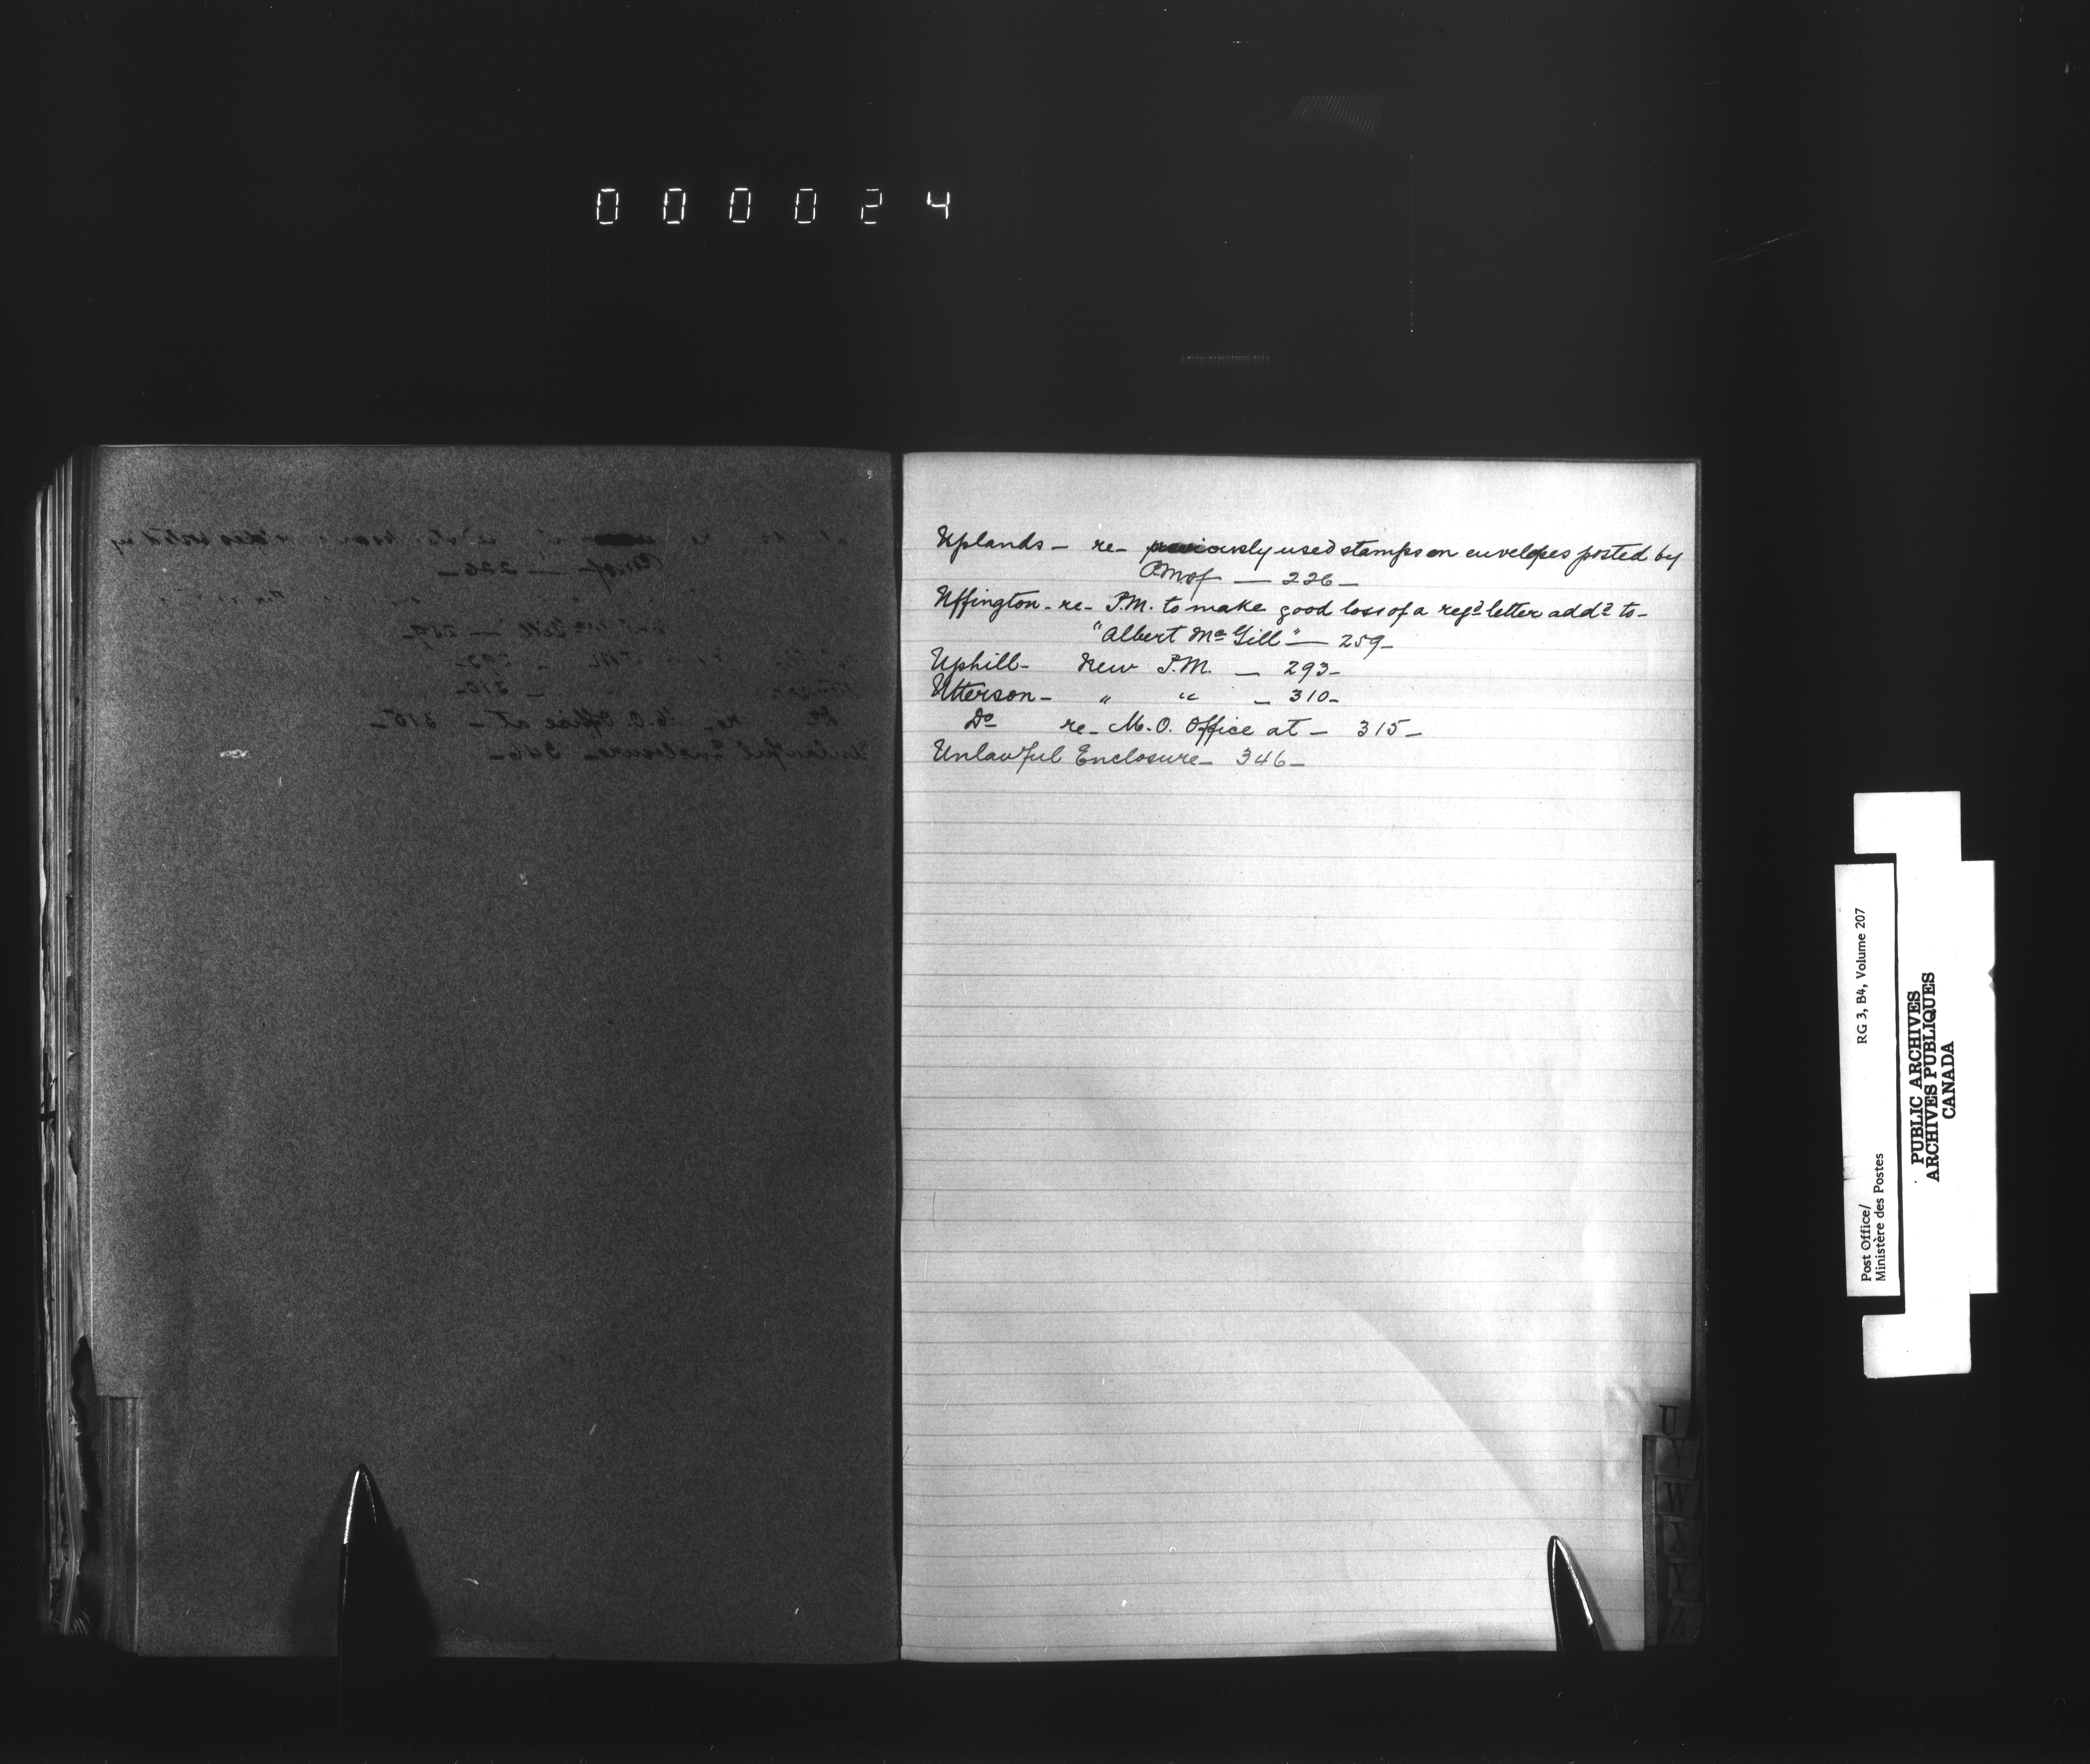 000024
Uplands - re- previously used stamps on envelopes posted by
P.M. of — 226 -
Uffington - re - P.M. to make good loss of a regd letter addd to -
"Albert Mc Gill" — 259 -
Uphill - New P.M. - 293 -
Utterson - " " - 310 -
Do re - M.O. Office at - 315 -
Unlawful Enclosure - 346 -
U
V
W
X
Y
Z
Post Office/ RG 3, B4, Volume 207
Ministère des Postes
PUBLIC ARCHIVES
ARCHIVES PUBLIQUES
CANADA